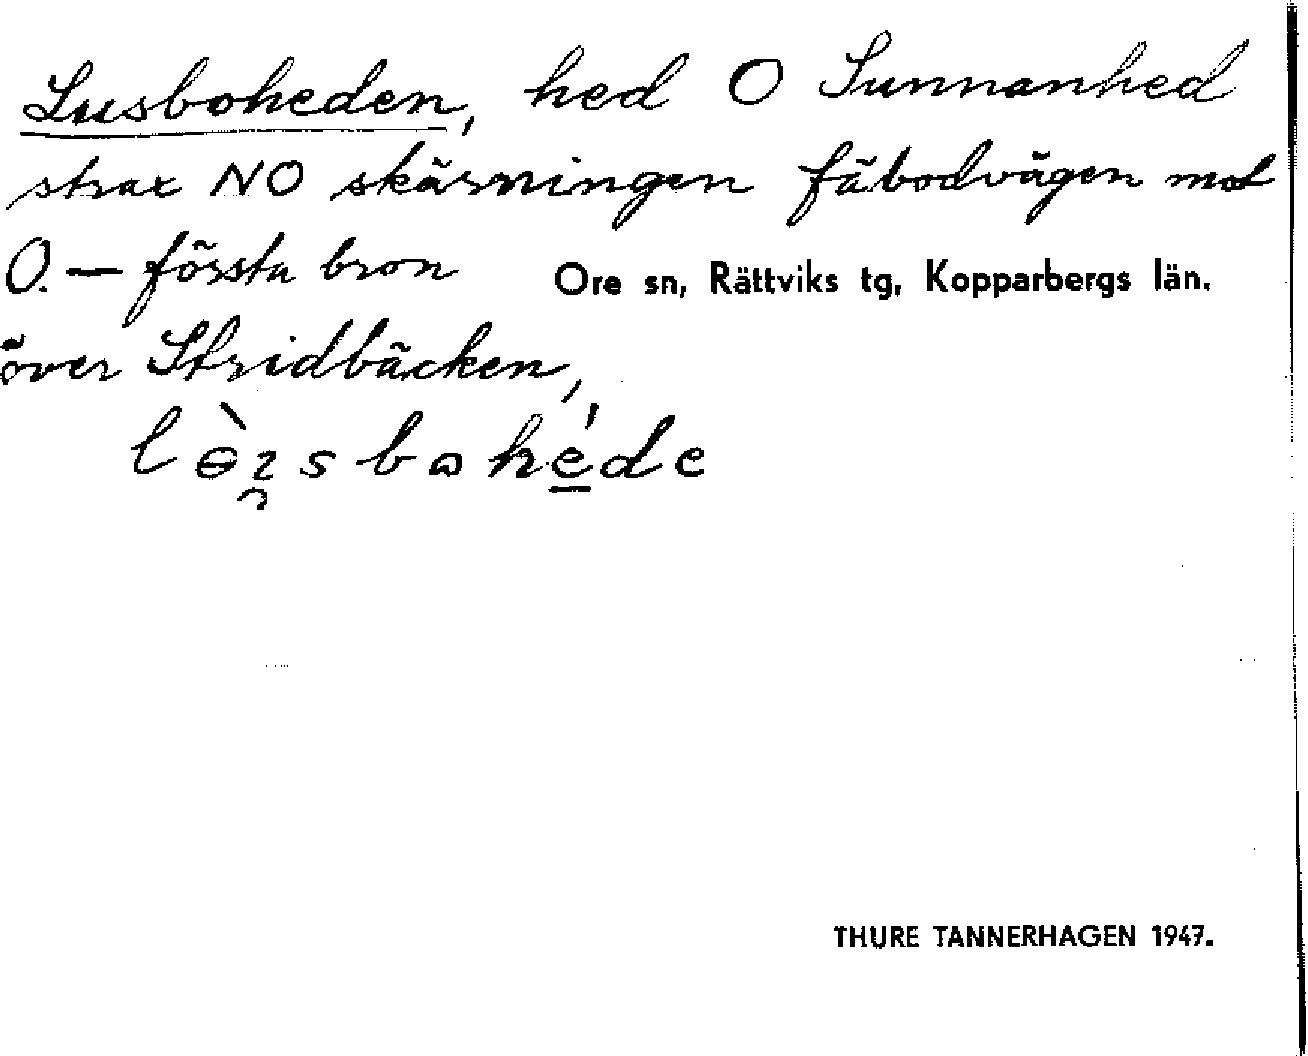 Lusboheden, hed O Sunnanhed
strax NO skärningen fäbodvägen mot
O. — första bron
Ore sn, Rättviks tg, Kopparbergs län.
över Stridbäcken,
THURE TANNERHAGEN 1947.